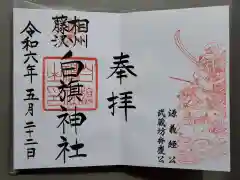 奉拝
源義経公
武蔵坊弁慶公
相州
藤沢
白旗神社
令和六年五月二十二日